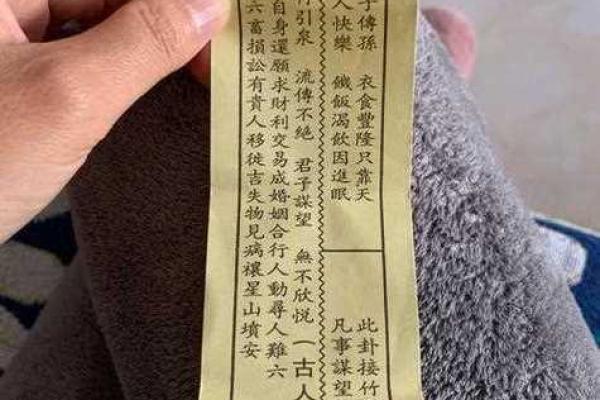 子傳孫 衣食豐隆只靠天
人快樂 饑飯渴飲因進眠
此卦接竹
凡事謀望
引泉 流傳不絕 君子謀望 無不欣悅 (古人
自身還願求財利交易成婚姻合行人動尋人難六
六畜損訟有貴人移徙吉失物見病禳星山墳安